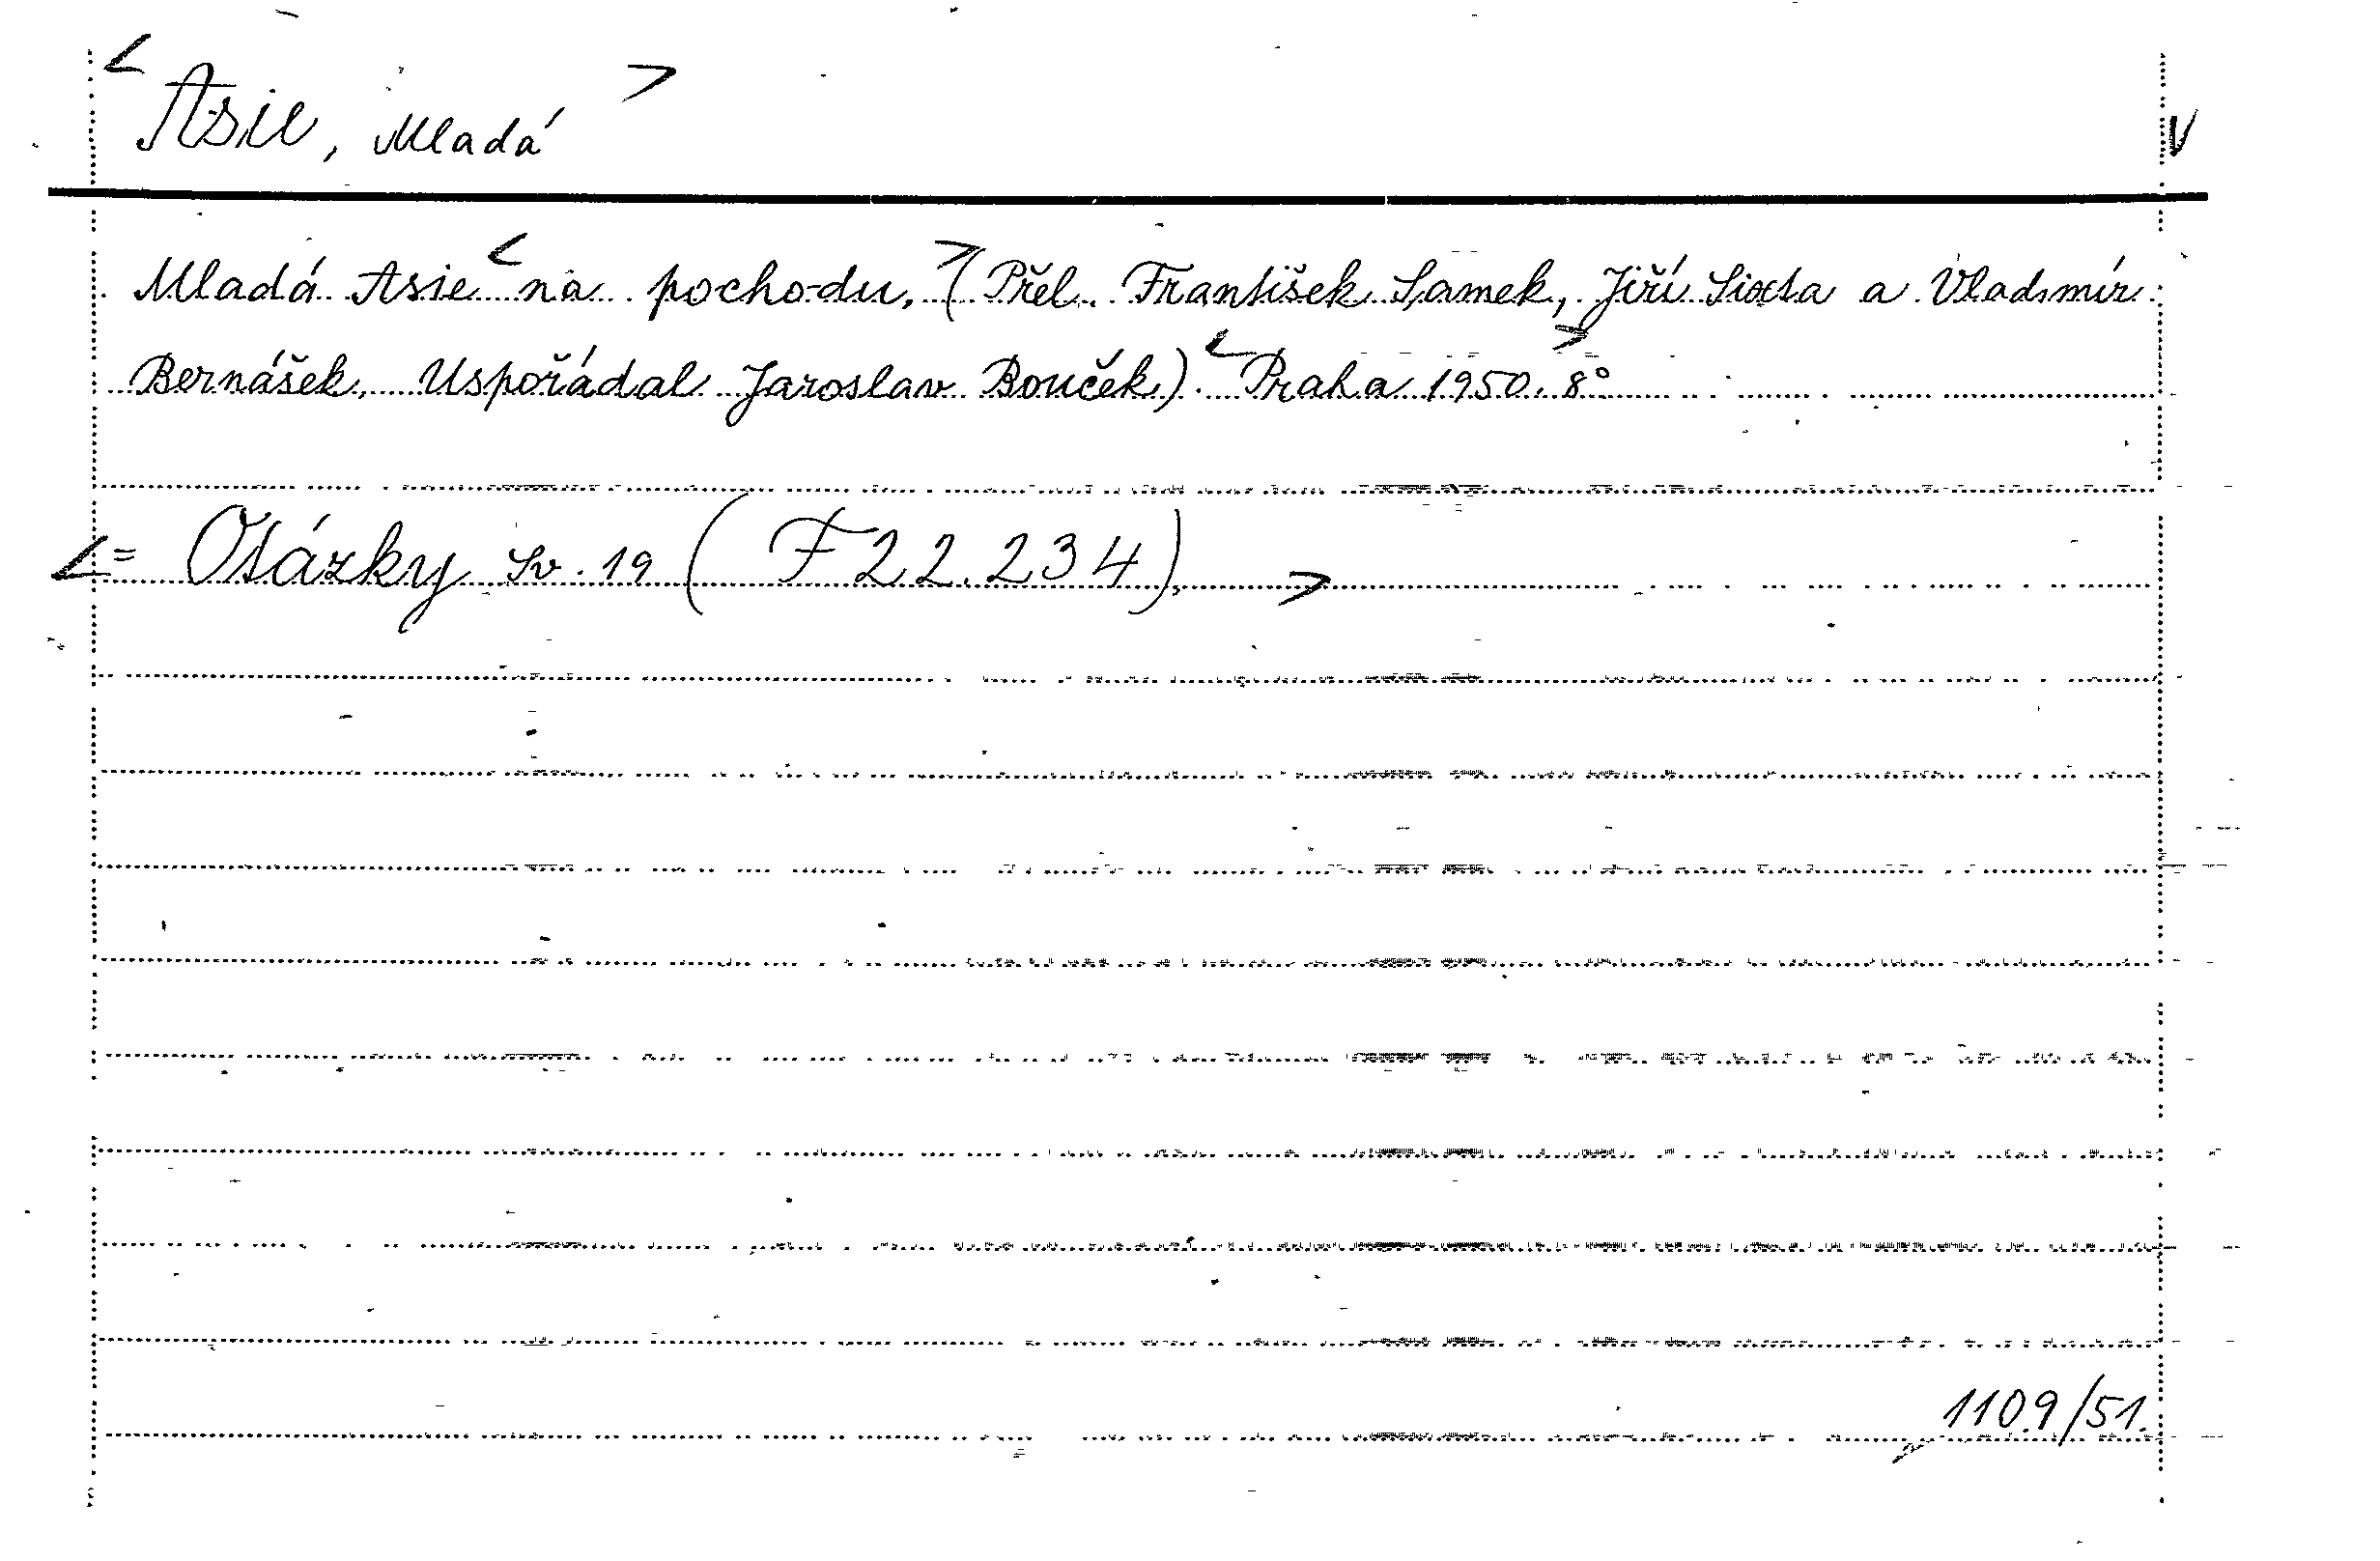 < Asie, Mladá > V
Mladá Asie < na pochodu, > (Přel. František Samek, Jiří Sixta a Vladimír
Bernášek, Uspořádal Jaroslav Bouček). < Praha 1950. > 8°
< = Otázky sv. 19 (F 22.234), >
1109/51.